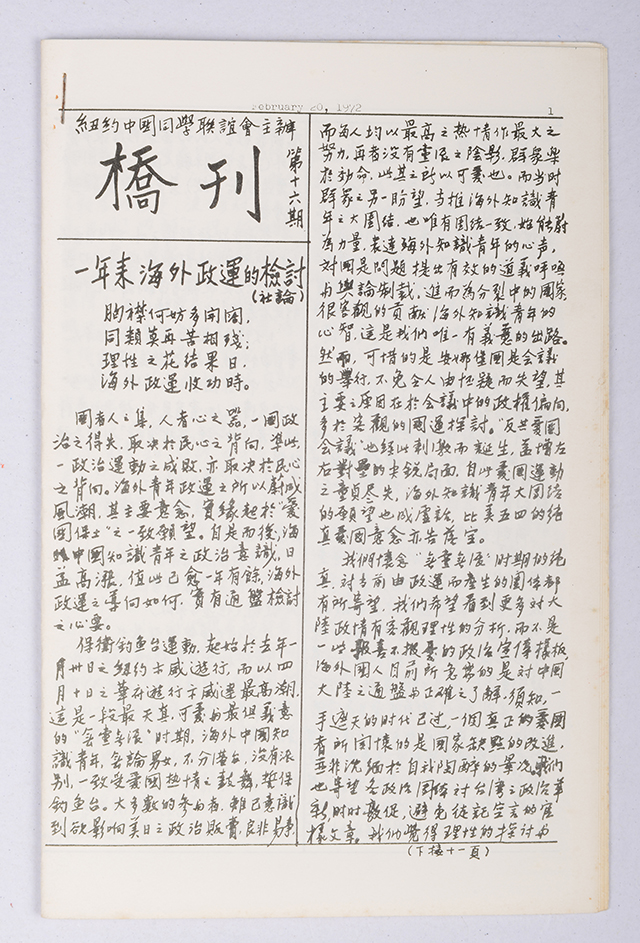 February 20, 1972
1
紐約中國同學聯誼會主辦
橋刊
第十六期
一年来海外政运的檢討
(社論)
胸襟何妨多開闊,
同類莫再苦相殘;
理性之花結果日,
海外政運收功時。
國者人之集,人者心之器,一國政
治之得失,取決於民心之背向,準此,
一政治運動之成敗,亦取決於民心
之背向。海外青年政運之所以蔚成
風潮,其主要意念,實緣起於“愛
國保土”之一致願望。自是而後,海
外中國知識青年之政治意識,日
益高漲,值此已愈一年有餘,海外
政運之導向如何,實有通盤檢討
之心要。
保衛釣魚台運動,起始於去年一
月卅日之紐約示威遊行,而以四
月十日之華府遊行示威運最高潮。
這是一段最天真,可爱与最但義意
的“無重無浪”时期,海外中國知
識青年,無論男女,不分港台,沒有派
别,一致受愛國热情之鼓舞,誓保
釣魚台。大多數的參与者,雖已意識
到欲影响美日之政治販賣,良非易事
而每人均以最高之热情作最大之
努力,再者沒有重浪之陰影,群眾樂
於効命,此其之所以可爱也。而当时
群眾之另一盼望,与推海外知識青
年之大團结,也唯有团结一致,始能蔚
為力量,表達海外知識青年的心声,
对國是問題提出有效的道義呼喚
与輿論制裁,進而為分裂中的國家
很客觀的貢献海外知識青年的
心智,這是我們唯一有義意的出路。
然而,可惜的是安娜堡國是會議
的舉行,不免令人由怀疑而失望,其
主要之原因在於会議中的政權偏向,
多於客觀的國運探討。“反共愛國
会議”也經此刺激而誕生,益增左
右對壘的尖銳局面,自此愛國運動
之童貞尽失,海外知識青年大團结
的願望也成虛話,比美五四的纯
真愛國意念亦告落空。
我們懷念“無重無浪”时期的纯
真,对当前由政運而產生的團体都
有所寄望,我們希望看到更多对大
陸政情有客觀理性的分析,而不是
一些報喜不報憂的政治宣傳樣板,
海外國人目前所急需的是对中國
大陸之通盤与正確之了解,須知,一
手遮天的时代已过,一個真正的愛國
者所関懷的是國家缺點的改進,
並非沈緬於自我陶醉的景况。我們
也寄望各政治团体对台湾之政治革
新,时时敦促,避免徒託空言的官
樣文章。我們覺得理性的探討与
(下接十一頁)